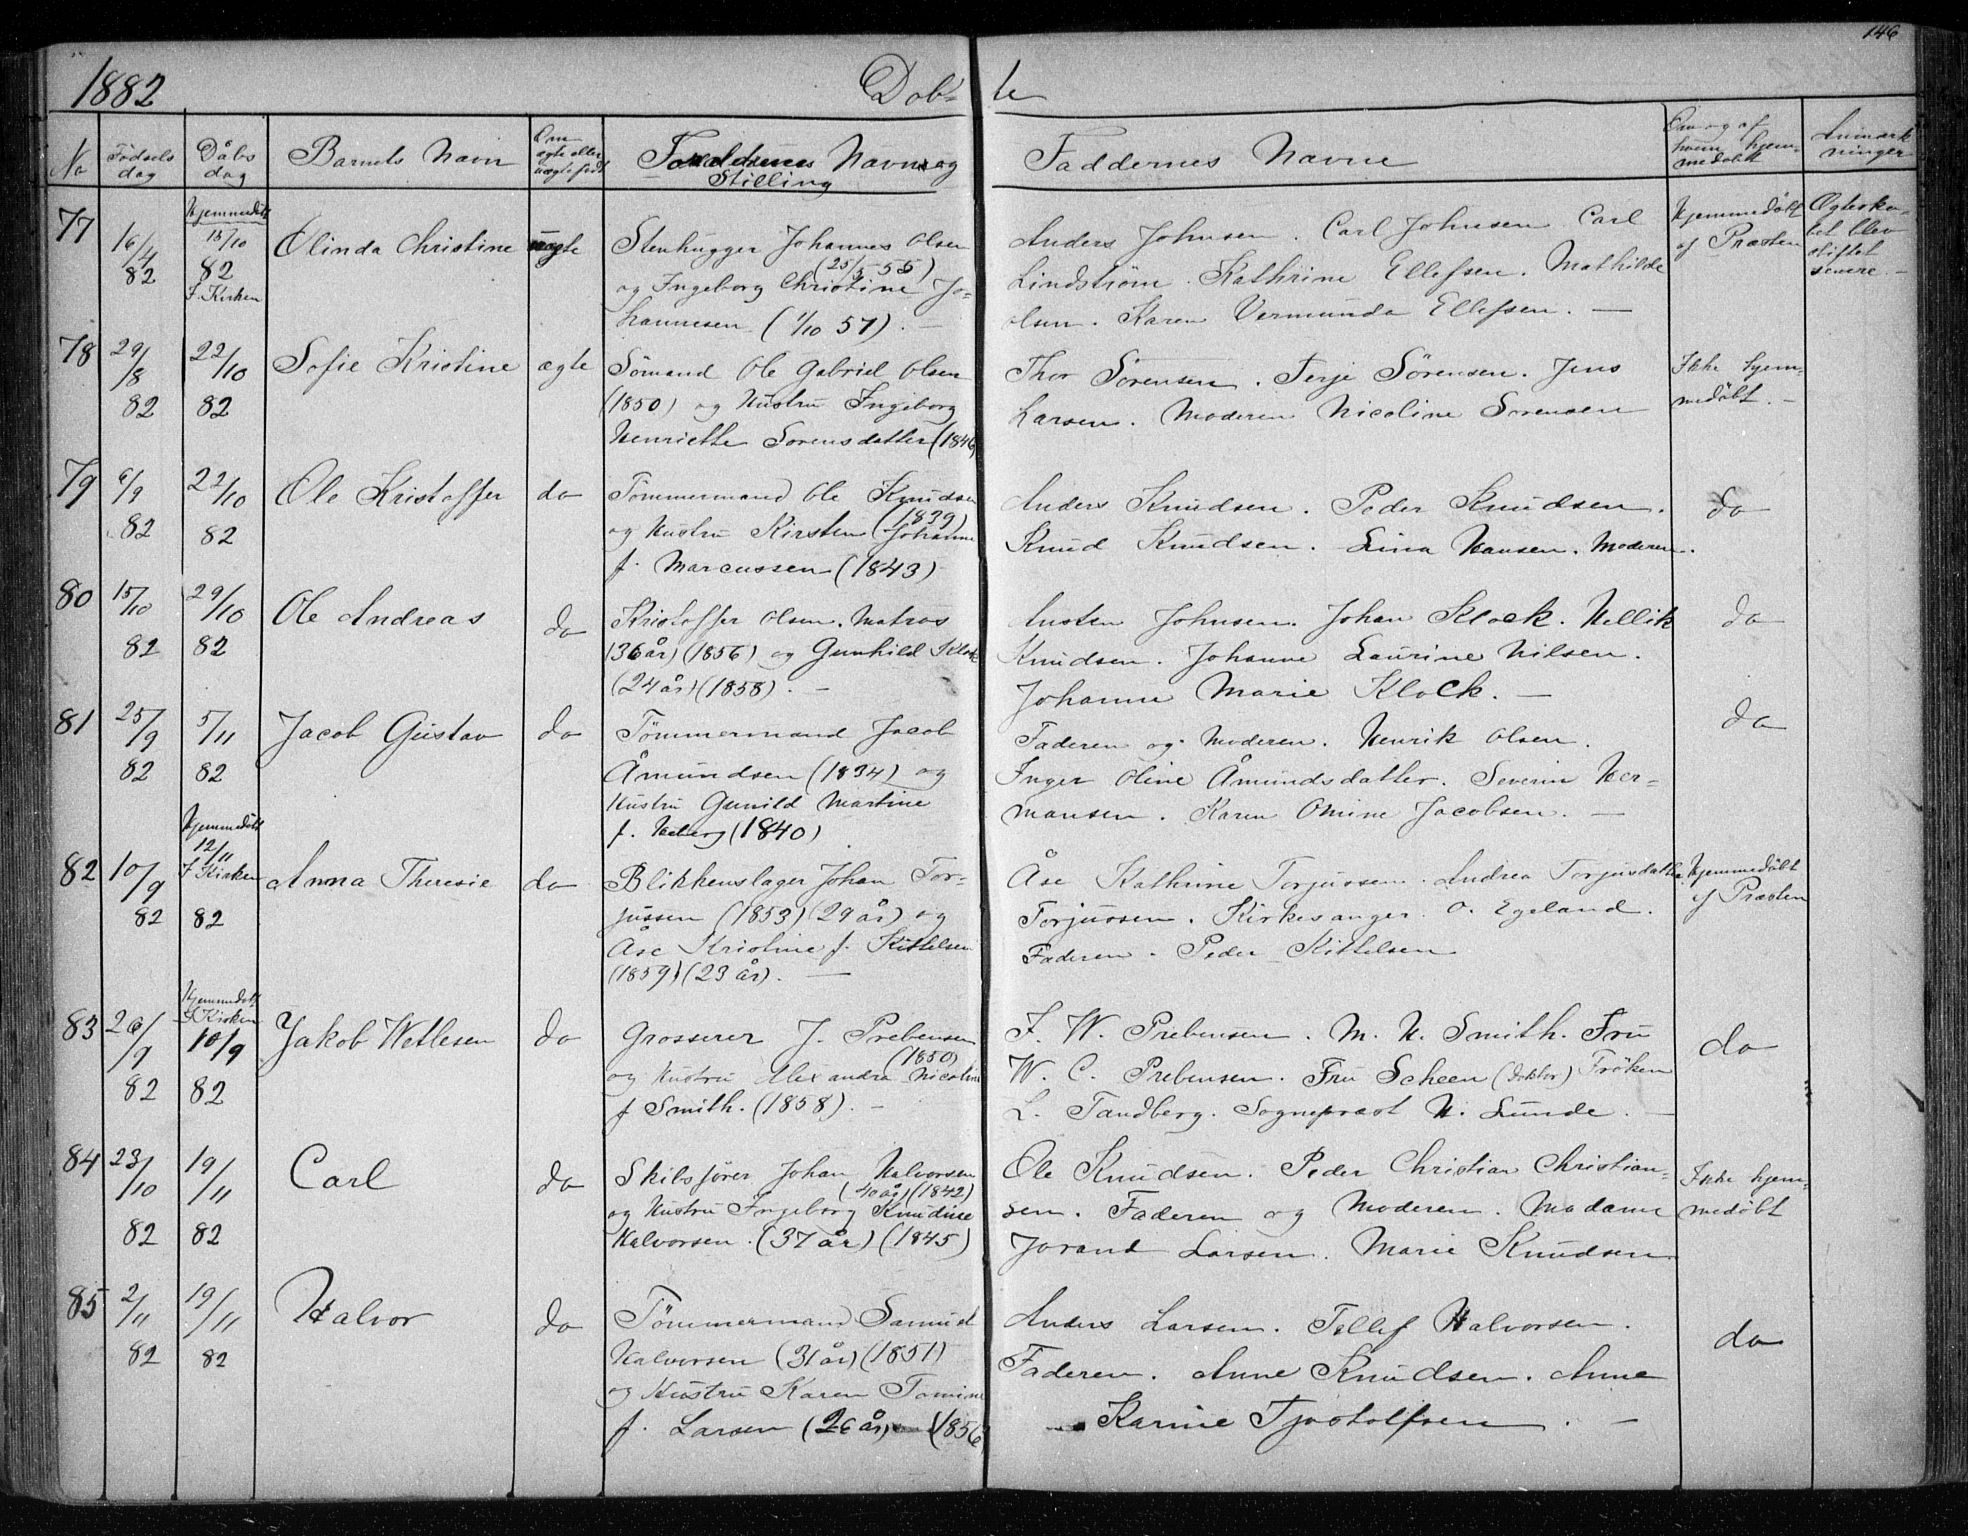 146
1882 Dob- te
No
Fødsels dag
Dåbs dag
Barnets Navn
Om ægte eller uægte født
Forældrenes Navn og Stilling
Faddernes Navne
Om og af hvem hjemmedøbt
Anmærkninger
77
16/4 82
Hjemmedøbt 15/10 82 I. Kirken
Olinda Christine
uægte
Stenhugger Johannes Olsen
(25/5 55)
og Ingeborg Christine Jo-
hannesen (1/10 57). —
Anders Johnsen. Carl Johnsen Carl
Lindstrøm. Kathrine Ellefsen. Mathilde
Olsen. Karen Vermunda Ellefsen. —
Hjemmedøbt
af Præsten
Ægteska-
bet blev
stiftet
senere. —
78
29/8 82
22/10 82
Sofie Kristine
ægte
Sömand Ole Gabriel Olsen
(1850) og Hustru Ingeborg
Henriette Sorensdatter (1846)
Thor Sörensen. Terje Sörensen. Jens
Larsen. Moderen Nicoline Sorensen
Ikke hjem-
medøbt. —
79
6/9 82
22/10 82
Ole Kristoffer
do
Tömmermand Ole Knudsen
(1839)
og Hustru Kirsten Johanne
f. Marcussen (1843)
Anders Knudsen. Peder Knudsen.
Knud Knudsen. Lina Hansen. Moderen.
do
80
15/10 82
29/10 82
Ole Andreas
do
Kristoffer Olsen. Matros
(36 år) (1856) og Gunhild Klock
(24 år) (1858). —
Austen Johnsen. Johan Klock. Kellik
Knudsen. Johanne Laurine Nilsen.
Johanne Marie Klock. —
do
81
25/9 82
5/11 82
Jacob Gustav
do
Tömmermand Jacob
Åmundsen (1834) og
Hustru Gunild Martine
f. Heberg (1840)
Faderen og Moderen. Henrik Olsen.
Inger Oline Åmundsdatter. Severin Her-
mansen. Karen Omine Jacobsen. —
do
82
10/9 82
Hjemmedøbt 12/11 I Kirken 82
Anna Theresie
do
Blikkenslager Johan Tor-
jussen (1853) (29 år) og
Åse Kristine f. Kittelsen
(1859) (23 år). —
Åse Kathrine Torjussen. Andrea Torjusdatter
Torjussen. Kirkesanger O. Egeland.
Faderen. Peder Kittelsen
Hjemmedøbt
af Præsten
83
26/9 82
Hjemmedøbt I Kirken 10/9 82
Jakob Wetlesen
do
Grosserer J. Prebensen
(1850)
og Hustru Alexandra Nicoline
f Smith. (1858). —
F. W. Prebensen. M. N. Smith. Fru
W. C. Prebensen. Fru Scheen (Doktor) Fröken
L. Tandberg. Sognepræst N. Lunde. —
do
84
23/10 82
19/11 82
Carl
do
Skibsförer Johan Halvorsen
(40 år) (1842)
og Hustru Ingeborg Knudine
Halvorsen. (37 år) (1845)
Ole Knudsen. Peder Christian Christian-
sen. Faderen og Moderen. Madame
Jorand Larsen. Marie Knudsen.
Ikke hjem-
medøbt
85
2/11 82
19/11 82
Halvor
do
Tömmermand Samuel
Halvorsen (31 år) (1851)
og Hustru Karen Tomine
f. Larsen (26 år) (1856)
Anders Larsen. Tellef Halvorsen.
Faderen. Anne Knudsen. Anne
Karine Tjostolfsen. —
do